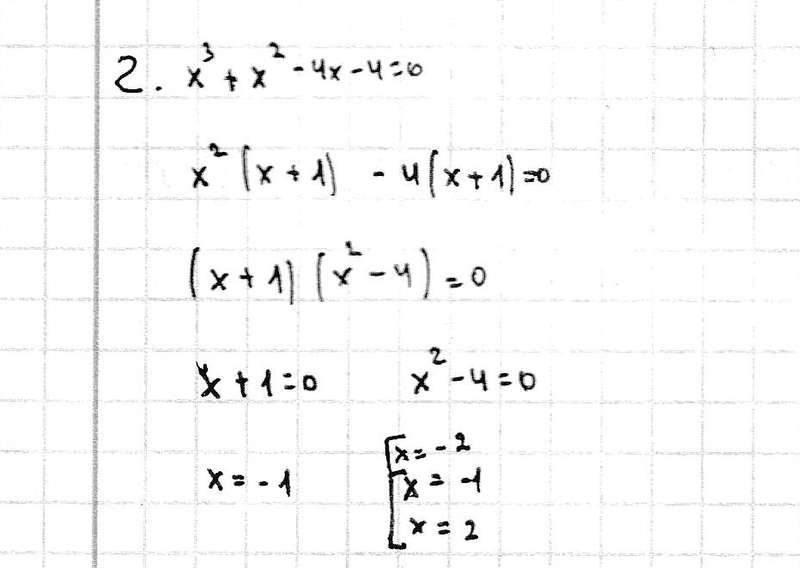 2. x³ + x² - 4x - 4 = 0
x² (x + 1) - 4(x + 1) = 0
(x + 1) (x² - 4) = 0
x + 1 = 0 x² - 4 = 0
x = -1 [x = -2
[x = -1
x = 2